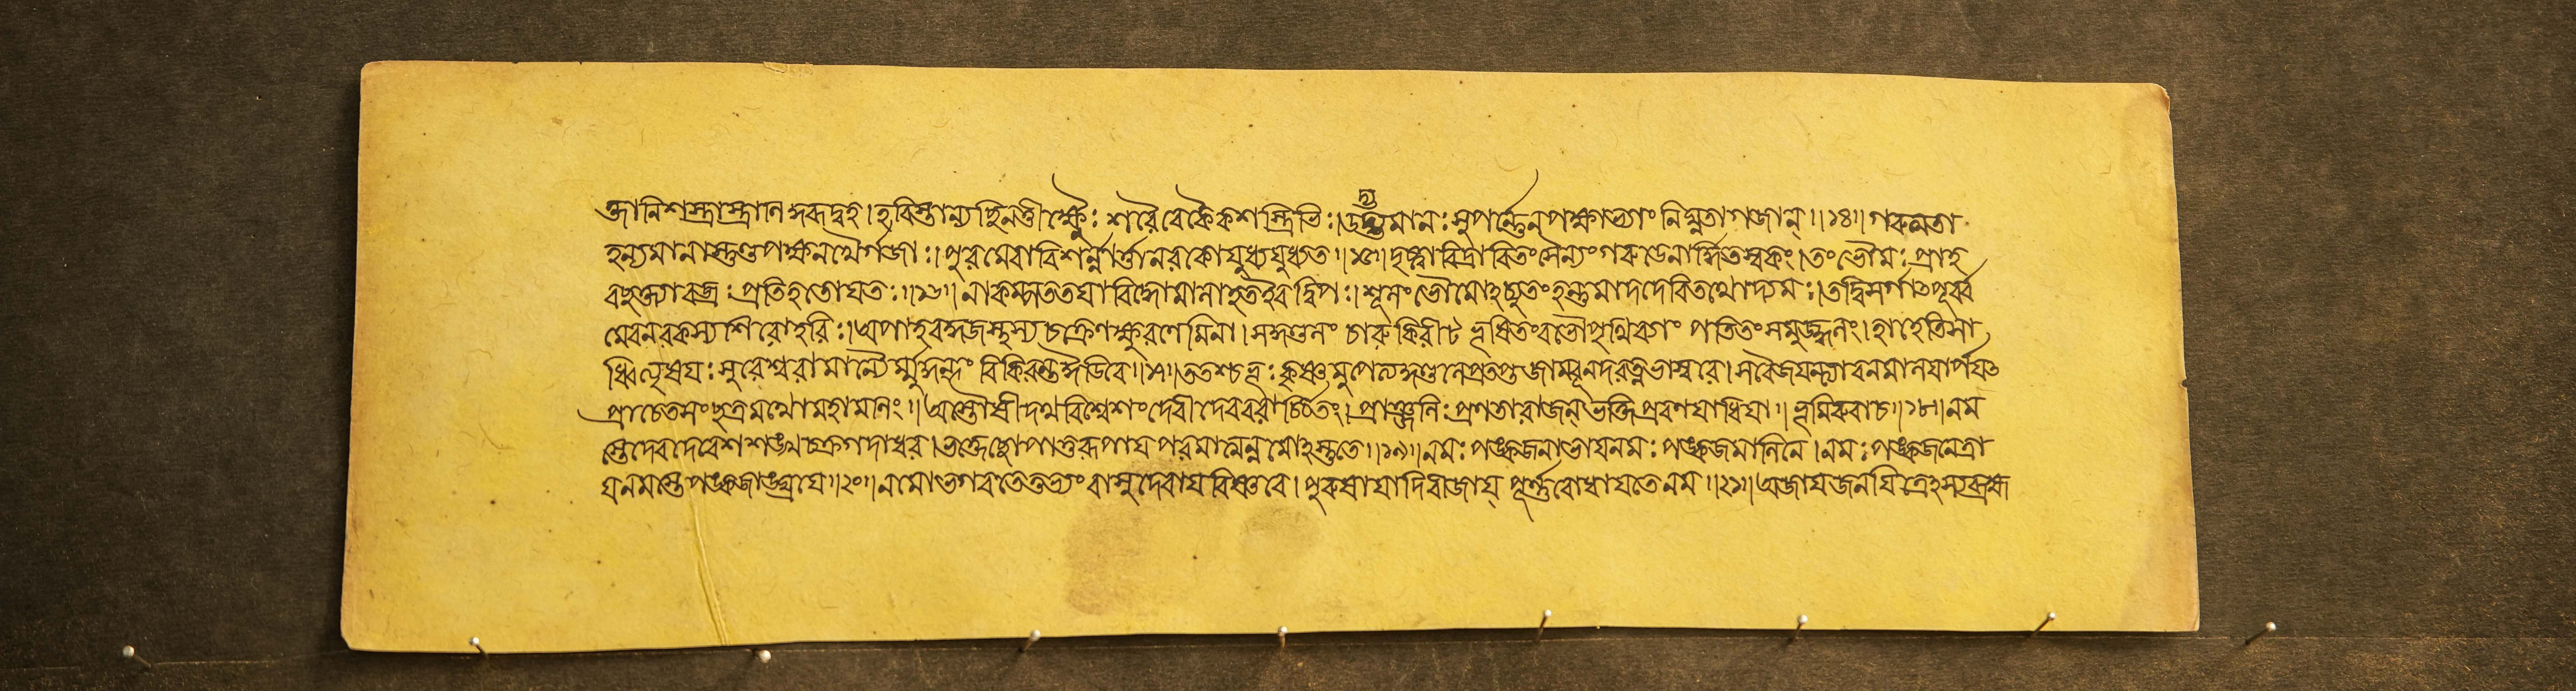 ক্তানিশস্ত্রাস্ত্রানিকুরূদ্বহ।হরিস্তান্যচ্ছিনত্তীক্ষ্ণৈঃ শরৈরেকৈকশস্ত্রিভিঃ।উহ্যমানঃসুপর্ন্নেনপক্ষাভ্যাং নিঘ্নতাগজান্॥১৪॥গরুত্মতা
হন্যমানাস্তুণ্ডপক্ষনখৈর্গজাঃ।পুরমেবাবিশন্নার্ত্তানরকোযুধ্যযুধ্যত॥১৫॥দৃষ্ট্বাবিদ্রাবিতংসৈন্যংগরুডেনার্দ্দিতস্বকং।তংভৌমঃপ্রাহ
রচ্ছক্ত্যাবজ্রঃপ্রতিহতোযতঃ॥১৬॥নাকম্পততযাবিদ্ধোমালাহতইবদ্বিপঃ।শূলংভৌমোঽচ্যুতংহন্তুমাদদেবিতথোদ্যমঃ।তদ্বিসর্গাৎপূর্ব্ব
মেবনরকস্যশিরোহরিঃ।অপাহরদ্গজস্থস্যচক্রেণক্ষুরণেমিনা।সকুণ্ডলং চারুকিরীট ভূষিতংবভৌপৃথিব্যাং পতিতংসমুজ্জ্বলং।হাহেতিসা
ধ্বিত্যৃষযঃসুরেশ্বরামাল্যৈর্ম্মুকুন্দং বিকিরন্তঈডিরে॥১৭॥ততশ্চভূঃকৃষ্ণমুপেত্যকুণ্ডলেপ্রতপ্তজাম্বূনদরত্নভাস্বরে।সবৈজযন্ত্যাবনমালযার্পযৎ
প্রাচেতসংছত্রমথোমহামণিং॥অস্তৌষীদথবিশ্বেশংদেবীদেববরার্চ্চিতং।প্রাঞ্জলিঃপ্রণতারাজন্ভক্তিপ্রবণযাধিযা॥ভূমিরুবাচ॥১৮॥নম
স্তেদেবদেবেশশঙ্খচক্রগদাধর।ভক্তেচ্ছোপাত্তরূপাযপরমাত্মন্নমোঽস্তুতে॥১৯॥নমঃপঙ্কজনাভাযনমঃপঙ্কজমালিনে।নমঃপঙ্কজনেত্রা
যনমস্তেপঙ্কজাঙ্ঘ্রযে॥২০॥নমোভগবতেতুভ্যংবাসুদেবাযবিষ্ণবে।পুরুষাযাদিবীজায্ পূর্ণ্ণবোধাযতেনমঃ॥২১॥অজাযজনযিত্রেঽস্যব্রহ্ম